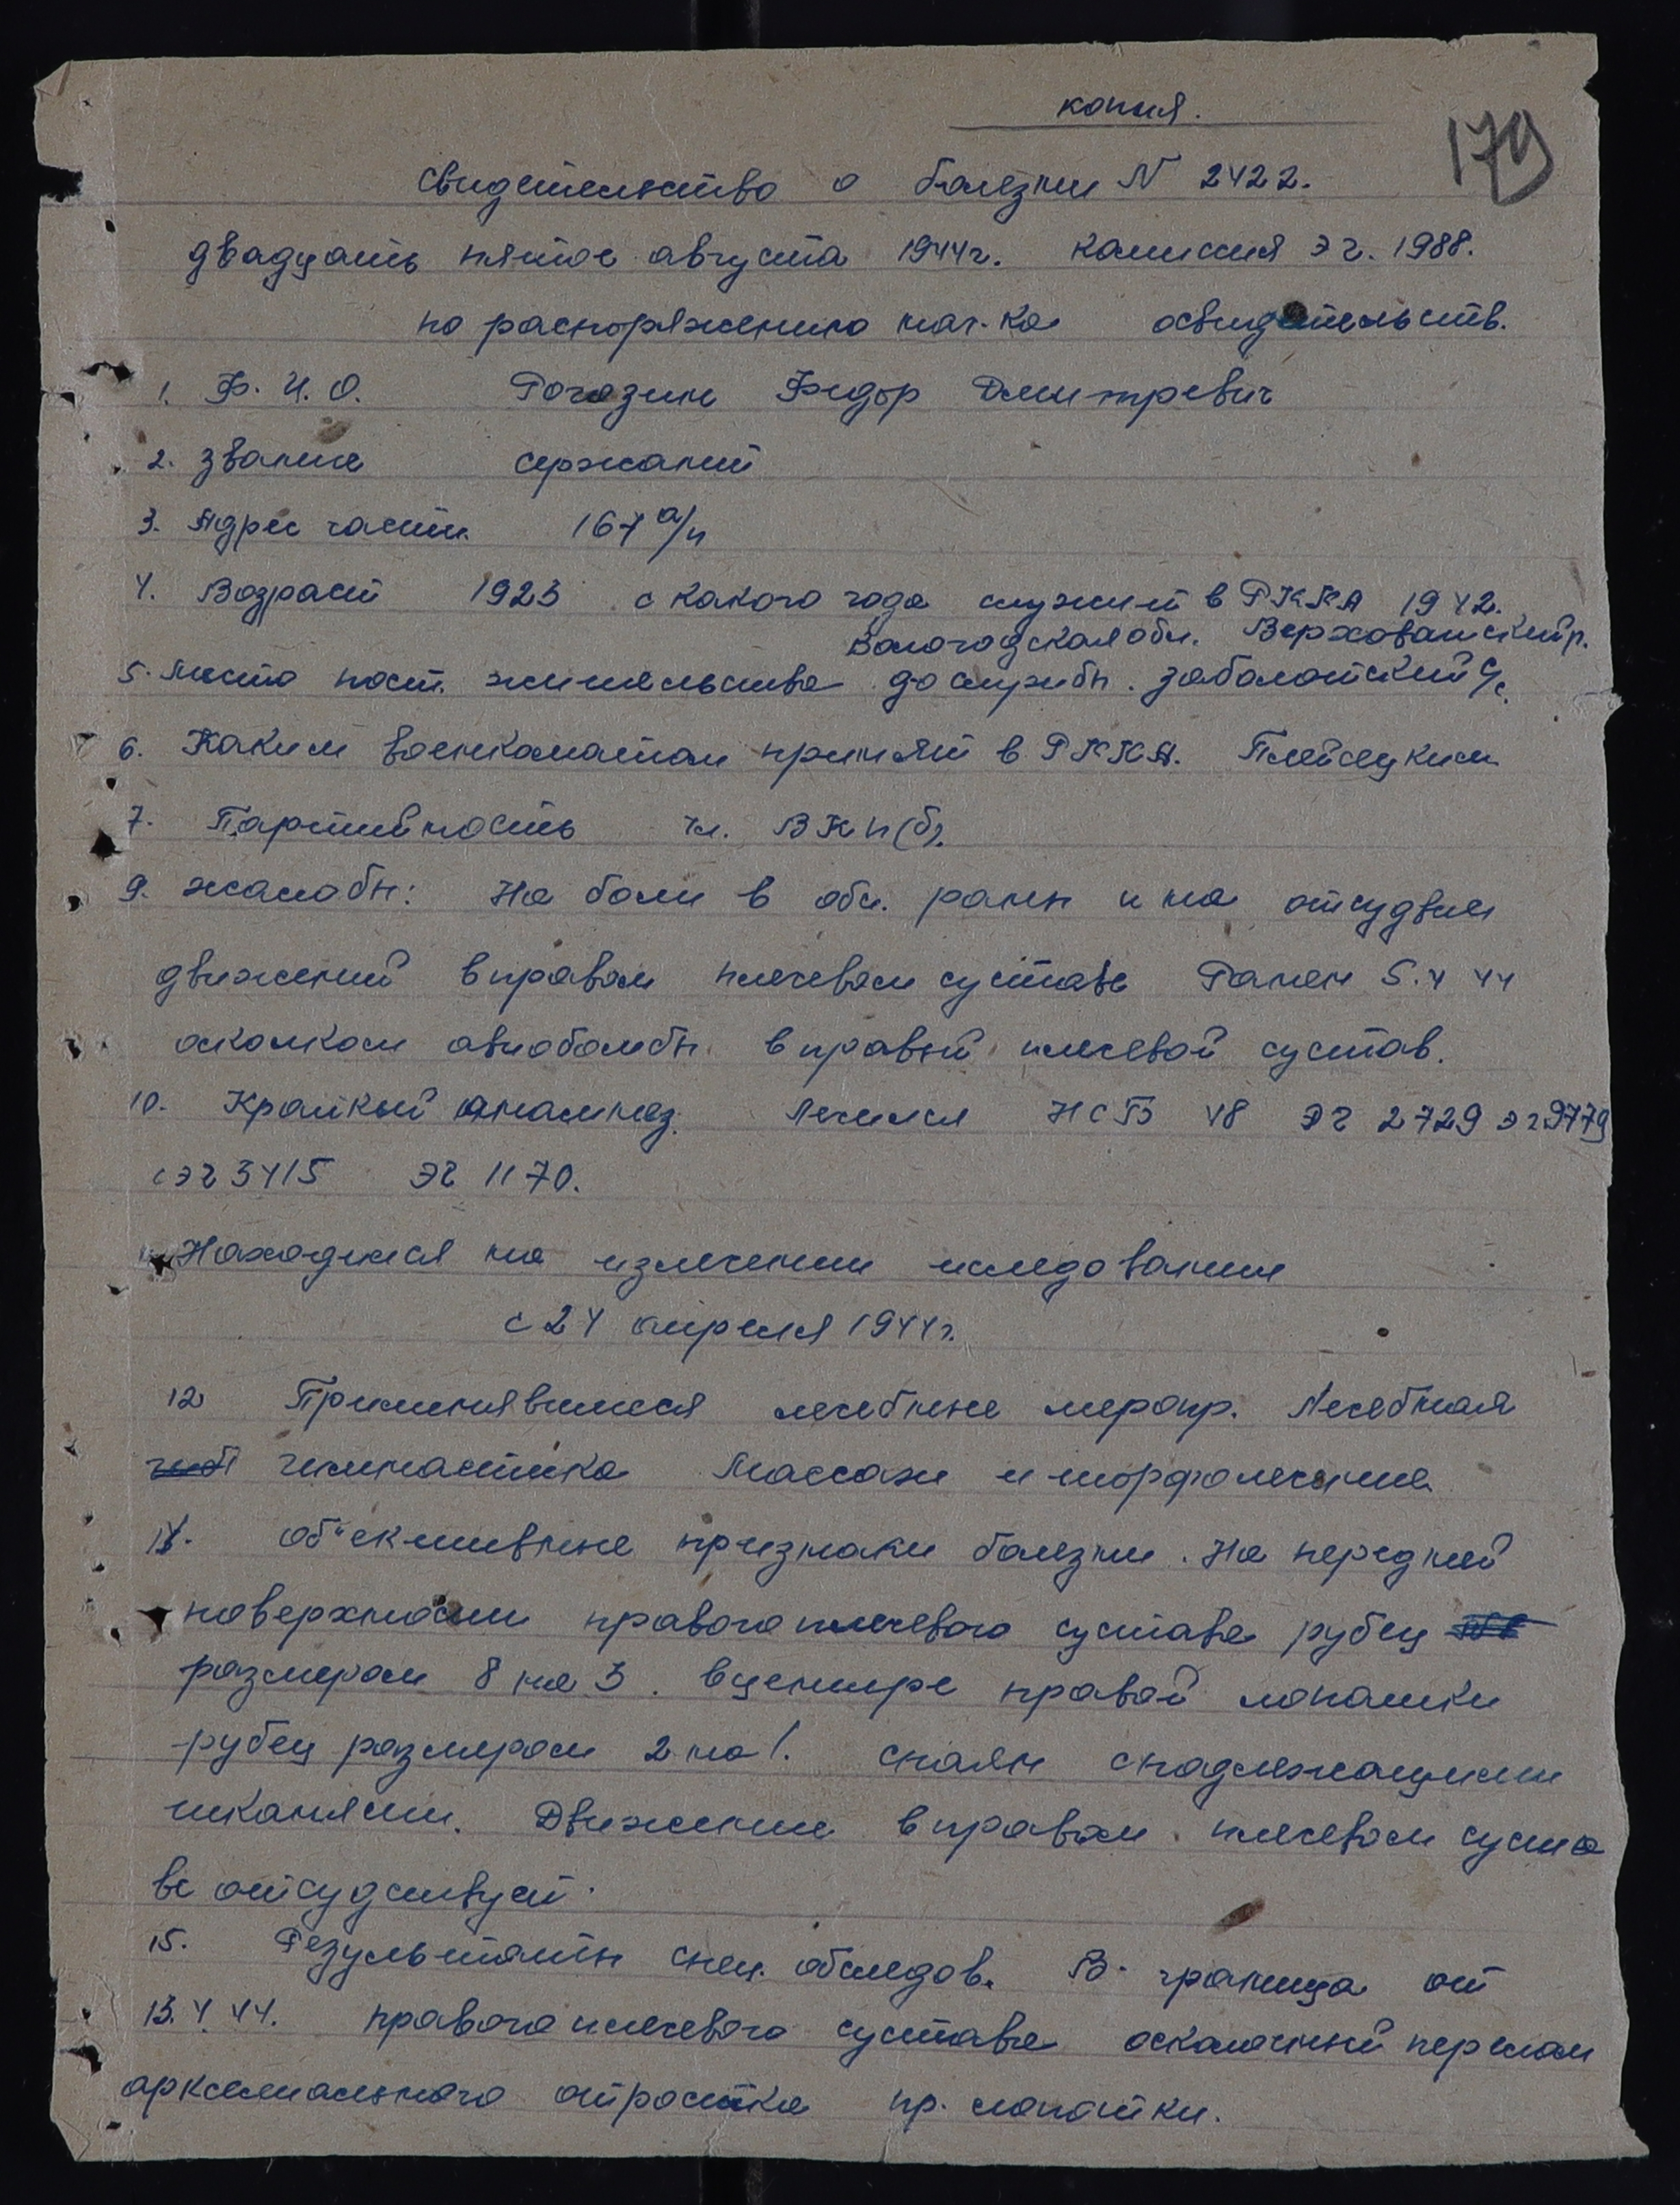 копия.
179
Свидетельство о болезни N 2422.
двадцать пятое августа 1944г. комиссия эг. 1988.
по распоряжению нач-ка освидетельств.
1. Ф. И. О. Рогозин Федор Дмитревич
2. звание сержант
3. Адрес части 167 а/п
4. Возраст 1923 с какого года служит в РККА 1942.
Вологодская обл. Верховажский р.
5. Место пост. жительства до службы. Заболотский с/с.
6. Каким военкоматом принят в РККА. Плейсецким
7. Партийность чл. ВКП(б).
9. жалобы: На боли в обл. раны и на отсудвии
движений в правом плечевом суставе Ранен 5.4 44
осколком авиобомбы в правый плечевой сустав.
10. Краткий анамнез. Лечился НСГ 48 ЭГ 2729 эг 9779
сэг 3415 ЭГ 1170.
Находился на излечении иследовании
с 24 апреля 1944г.
12 Применявшиеся лечебные меропр. Лечебная
гимнастика Массаж и торфолечение.
14. об"ективные признаки болезни. На передней
поверхности правого плечевого сустава рубец
размером 8 на 3. в центре правой лопатки
рубец размером 2 на 1. спаян с надлежащими
тканями. Движение в правом плечевом суста
ве отсудствует.
15. Результаты спец. обследов. В. граница от
13.4.44. правого плечевого сустава осколочный перелом
аркомиального отростка пр. лопатки.